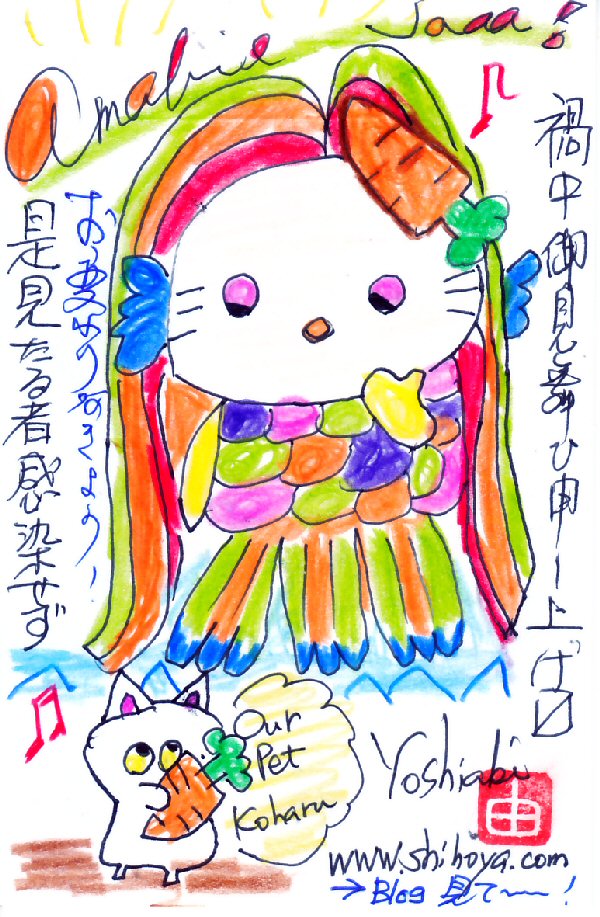 Amabie Jaaa!
禍中御見舞ひ申し上げ〼
是見たる者感染せず
Our
Pet
Koharu
Yoshiaki
由
www.shihoya.com
→ Blog 見て〜!